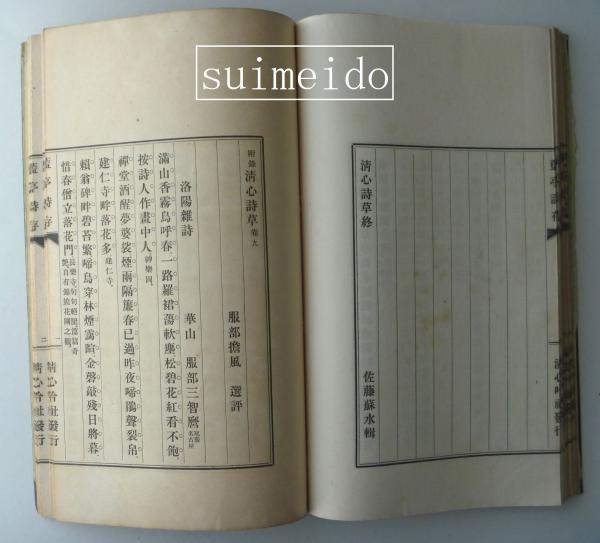 suimeido
清心詩草終
佐藤蘇水輯
附錄清心詩草卷九
服部擔風 選評
洛陽雜詩
華山 服部三智麿
滿山香霧鳥呼春。一路羅裙蕩軟塵。松碧花紅看不飽。
按詩人作畫中人。神樂岡。
禪堂酒醒夢婆娑。煙雨隔簾春已過。昨夜啼鵑聲裂帛。
建仁寺畔落花多。建仁寺。
賴翁碑畔碧苔繁。啼鳥穿林煙靄暄。金磬敲殘日將暮。
惜春僧立落花門。長樂寺。
藍亭詩存
二
清心吟社發行